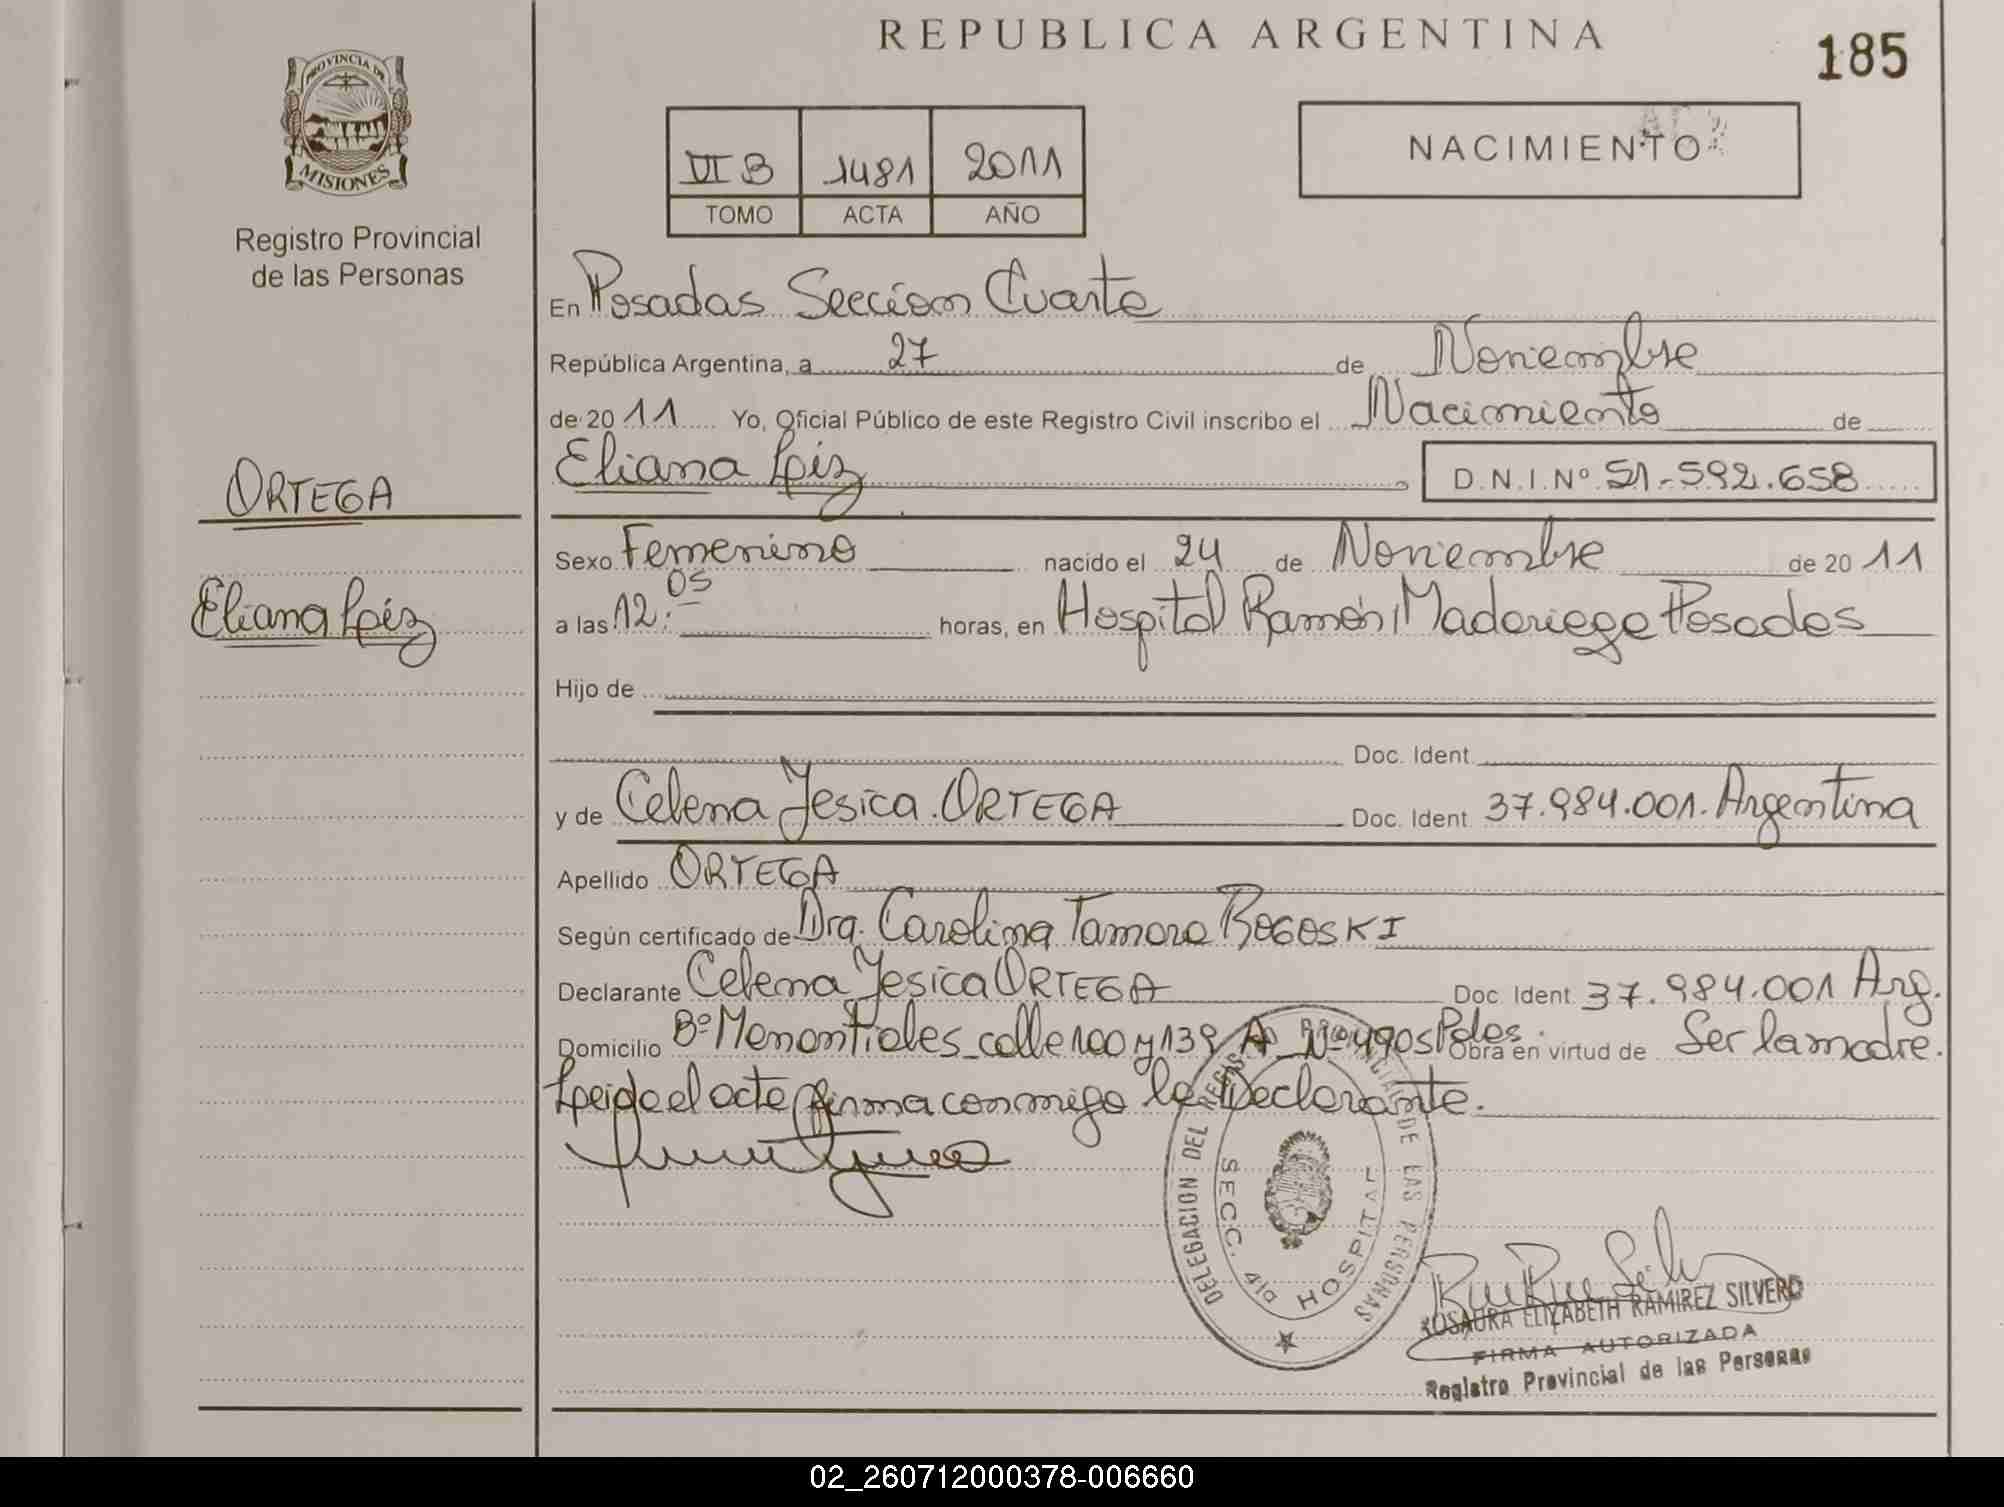 REPUBLICA ARGENTINA
185
PROVINCIA DE
MISIONES
Registro Provincial
de las Personas
VI B 1481 2011
TOMO ACTA AÑO
NACIMIENTO
En Posadas Sección Cuarta
República Argentina, a 27 de Noviembre
de 20 11 Yo, Oficial Público de este Registro Civil inscribo el Nacimiento de
Eliana Luz
D.N.I. Nº 51-592.658
ORTEGA
Eliana Luz
Sexo Femenino nacido el 24 de Noviembre de 20 11
a las 12:05 horas, en Hospital Ramón Madariaga Posadas
Hijo de
Doc. Ident.
y de Celena Yesica ORTEGA Doc. Ident. 37.984.001. Argentina
Apellido ORTEGA
Según certificado de Dra. Carolina Tamara BOGOSKI
Declarante Celena Yesica ORTEGA Doc. Ident. 37.984.001 Arg.
Domicilio Bº Manantiales calle 100 y 139 A Nº 4905 Pdas. Obra en virtud de Ser la madre.
Leida el acta firma conmigo la Declarante.
DELEGACION DEL REGISTRO PROVINCIAL DE LAS PERSONAS
SECC. 4ta HOSPITAL
ROSAURA ELIZABETH RAMIREZ SILVERO
FIRMA AUTORIZADA
Registro Provincial de las Personas
02_260712000378-006660